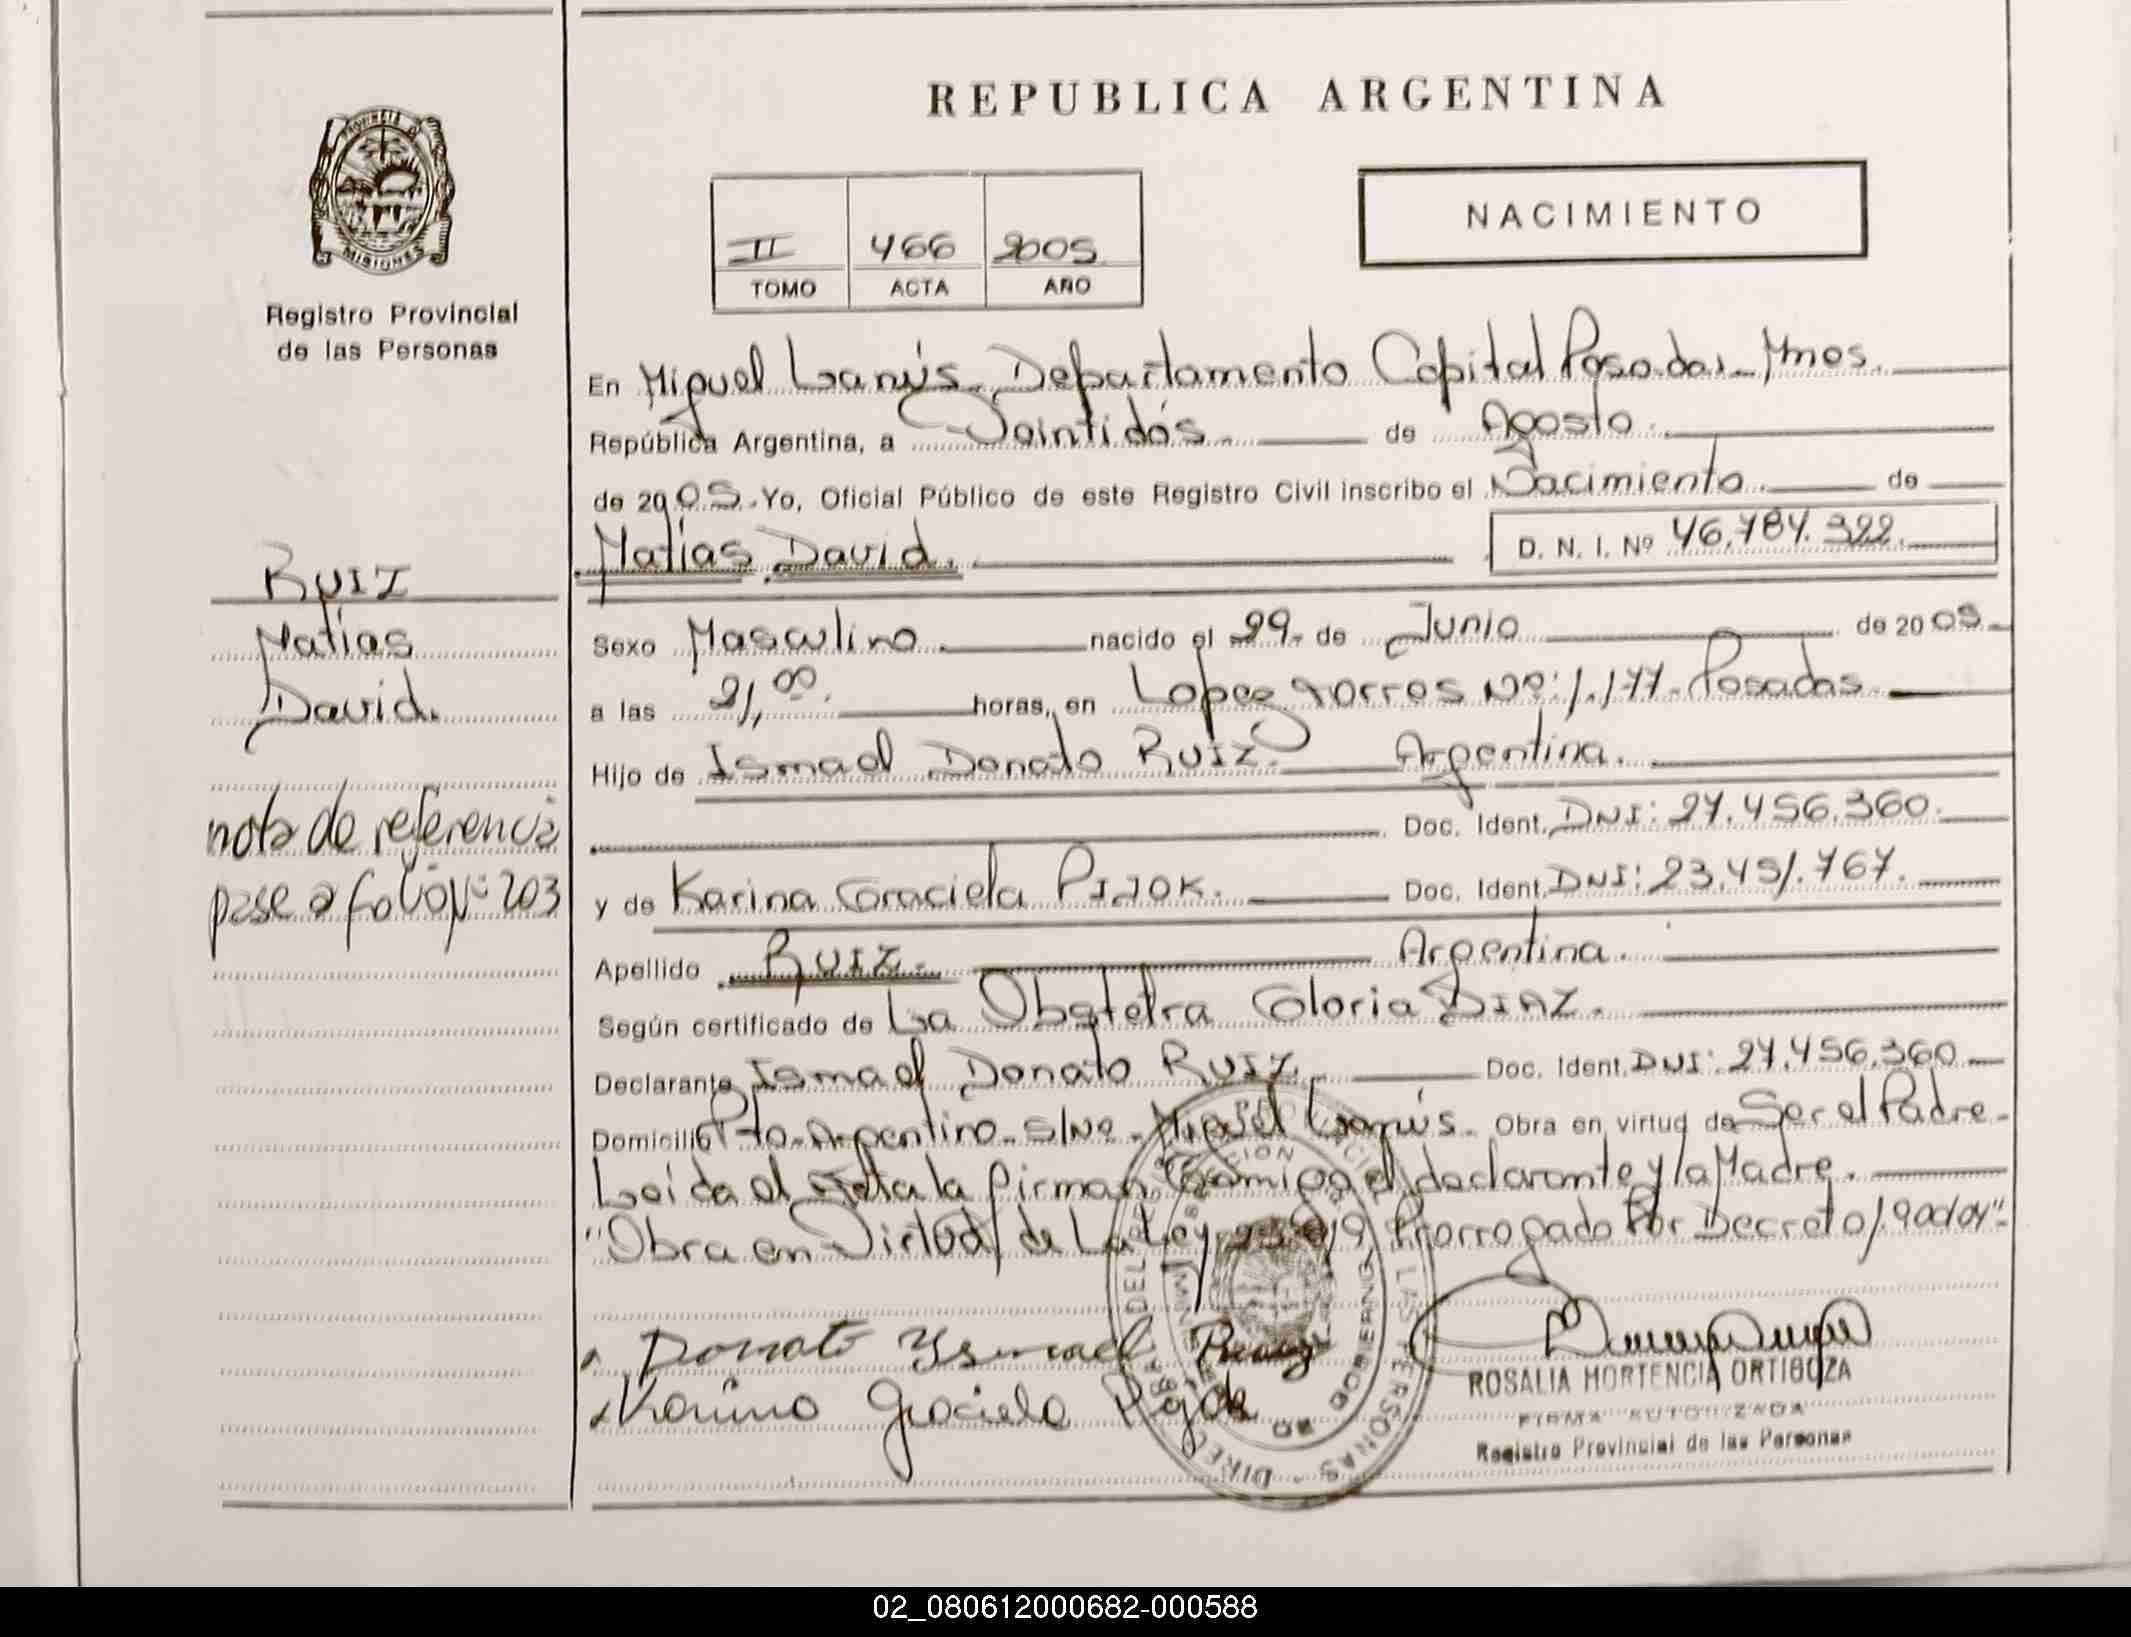 REPUBLICA ARGENTINA
PROVINCIA D
MISIONES
Registro Provincial
de las Personas
II 466 2005
TOMO ACTA AÑO
NACIMIENTO
En Miguel Lanús Departamento Capital Posadas Mnes.
República Argentina, a Veintidós de Agosto
de 2005. Yo, Oficial Público de este Registro Civil inscribo el Nacimiento de
Matías David. D. N. I. Nº 46.784.322.
RUIZ
Matías
David.
Sexo Masculino nacido el 29 de Junio de 2005
a las 21,00 horas, en Lopez Torres Nº: 1.177 Posadas
Hijo de Ismael Donato RUIZ. Argentina.
Doc. Ident. DNI: 27.456.360.
nota de referencia
pase a folio Nº 203
y de Karina Graciela PIJOK. Doc. Ident. DNI: 23.451.767.
Apellido RUIZ. Argentina.
Según certificado de La Obstetra Gloria DIAZ.
Declarante Ismael Donato RUIZ. Doc. Ident. DNI: 27.456.360
Domicilio Pto. Argentino s/Nº Miguel Lanús. Obra en virtud de Ser el Padre
Leída el Acta la firman Conmigo el declarante y la Madre.
"Obra en Virtud de La Ley Prorrogado Por Decreto
Donato Ysmael
Karina Graciela Pijok
ROSALIA HORTENCIA ORTIGOZA
FIRMA AUTORIZADA
Registro Provincial de las Personas
02_080612000682-000588